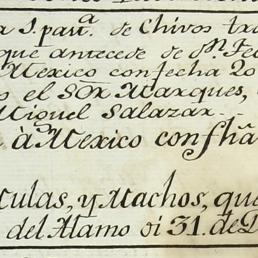 a S. pau.ª de Chivos
que antecede de M.l
Mexico con fecha 20
s el SOr Marques,
Miguel Salazar
à Mexico con fhã
ulas, y Machos, que
del Alamo oi 31. de D